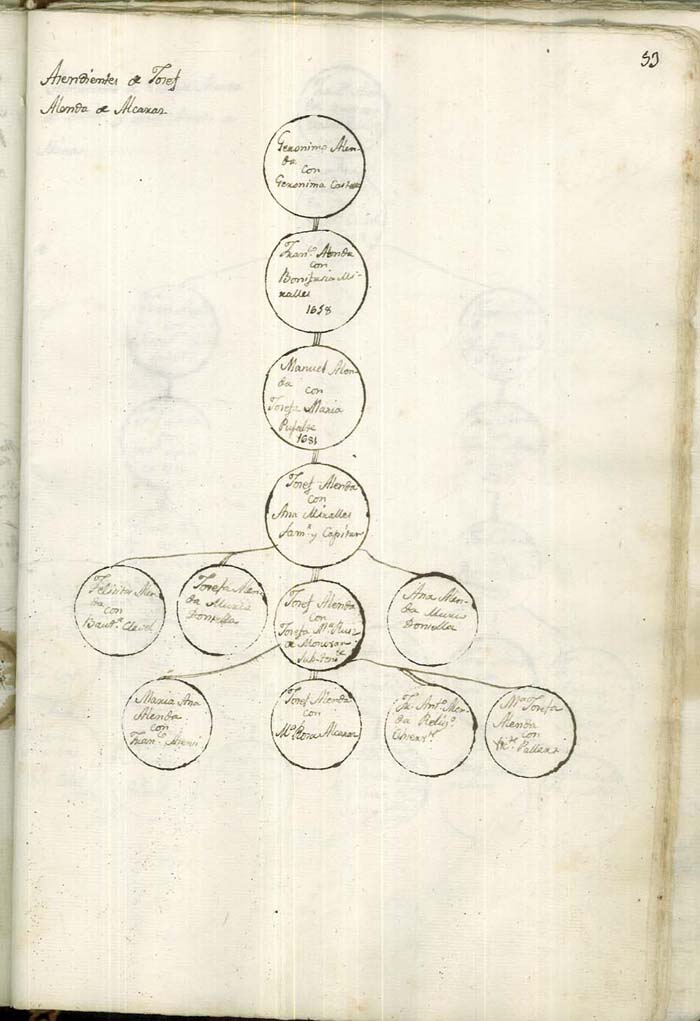 53
Asendientes de Josef
Alenda de Alcaraz
Geronimo Alen-
da
con
Geronima
Fran.co Alenda
con
Bonifasia Mi-
ralles
1658
Manuel Alen-
da
con
Josefa Maria
1681
Josef Alenda
con
Ana Miralles
fam.r y Capitan
Felicita Alen-
da
con
Baut.ta Clavel
Josefa Alen-
da Murio
Donsella
Josef Alenda
con
Josefa M.a Ruiz
de
Ana Alen-
da Murio
Donsella
Maria Ana
Alenda
con
Fran.co
Josef Alenda
con
M.a Rosa Alcaraz
Fr. Ant.o Alen-
da Relig.o
M.a Josefa
Alenda
con